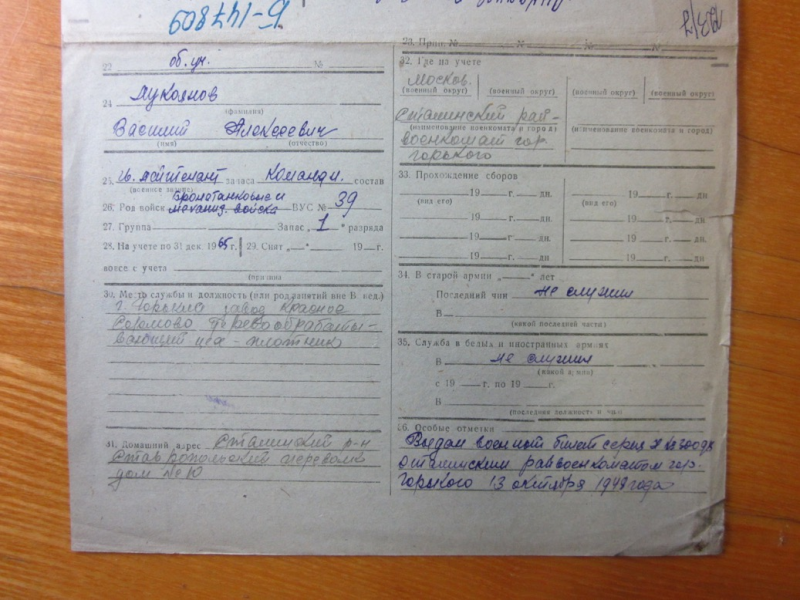 Б-147809
23. об. уч. №
24. Лукоянов
(фамилия)
Василий Алексеевич
(имя) (отчество)
25. гв. лейтенант запаса команд. состав
(военное звание)
26. Род войск Бронетанковые и механиз. войска ВУС № 39
27. Группа Запас „1“ разряда
28. На учете по 31 дек. 1965 г. 29. Снят „ “ 19 г.
вовсе с учета
(причина)
30. Место службы и должность (или род занятий вне В. вед.)
г. Горький завод Красное
Сормово Деревообрабаты-
вающий цех - плотник
31. Домашний адрес Сталинский р-н
Ставропольский переволк
дом № 10
23. Прип. № № № №
32. Где на учете
Москов.
(военный округ) (военный округ) (военный округ) (военный округ)
Сталинский рай-
(наименование военкомата и город) (наименование военкомата и город)
военкомат гор.
Горького
33. Прохождение сборов
19 г. дн. 19 г. дн
(вид его) (вид его)
19 г. дн. 19 г. дн
19 г. дн. 19 г. дн
19 г. дн. 19 г. дн
34. В старой армии „ “ лет
Последний чин не служил
В
(какой последней части)
35. Служба в белых и иностранных армиях
В не служил
(какой армии)
с 19 г. по 19 г.
В
(последняя должность и чин)
36. Особые отметки
Выдан военный билет серия
Сталинским райвоенкоматом гор.
Горького 13 октября 1948 года